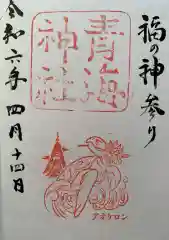 福の神参り
青海
神社
令和六年四月十四日
アオケロン